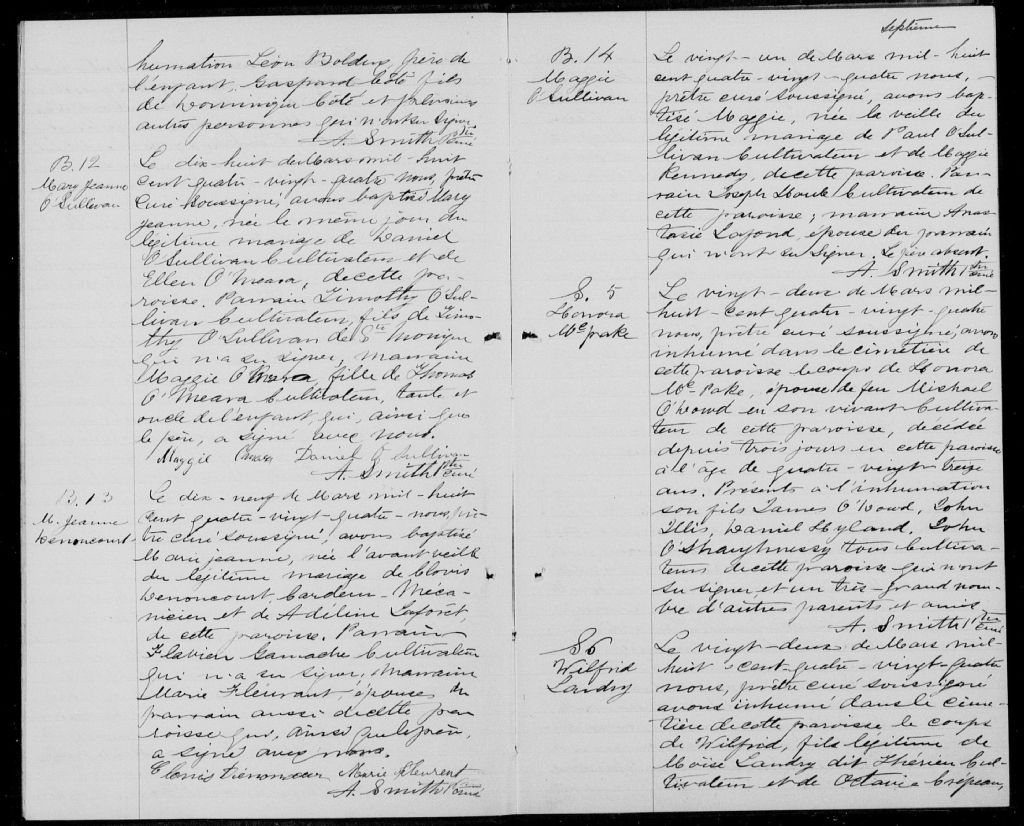 humation Léon Bolduc, père de
l'enfant, Gaspard Côté fils
de Dominique Côté et plusieurs
autres personnes qui n'ont su signer
A. Smith Ptre Curé
B. 12
Mary Jeanne
O'Sullivan
Le dix-huit de Mars mil-huit
cent quatre-vingt-quatre nous, prêtre
curé soussigné, avons baptisé Mary
Jeanne, née le même jour du
légitime mariage de Daniel
O'Sullivan Cultivateur et de
Ellen O'Meara, de cette pa-
roisse. Parrain Timothy O'Sul-
livan Cultivateur, fils de Timo-
thy O'Sullivan de Ste Monique
qui n'a su signer, marraine
Maggie O'Meara, fille de Thomas
O'Meara Cultivateur, tante et
oncle de l'enfant, qui, ainsi que
le père, a signé avec nous.
Maggie Omeara Daniel O Sullivan
A. Smith Ptre curé
B. 13
M. Jeanne
Denoncourt
Le dix-neuf de Mars mil-huit
cent quatre-vingt-quatre-nous, prê-
tre curé soussigné, avons baptisé
Marie jeanne, née l'avant veille
du légitime mariage de Clovis
Denoncourt, Meca-
nicien et de Adéline Laforêt,
de cette paroisse. Parrain
Flavien Gamache Cultivateur
qui n'a su signer, Marraine
Marie Fleurant, épouse du
parrain aussi de cette pa-
roisse qui, ainsi que le père,
a signé avec nous.
Clovis Dénoncour Marie fleurent
A. Smith Ptre Curé
Septième
B. 14
Maggie
O'Sullivan
Le vingt-un de Mars mil-huit
cent quatre-vingt-quatre nous,
prêtre curé soussigné, avons bap-
tisé Maggie, née la veille du
légitime mariage de Paul O'Sul-
livan Cultivateur et de Maggie
Kennedy, de cette paroisse. Par-
rain Joseph Cultivateur de
cette paroisse; marraine Anas-
tasie Lafond, épouse du parrain
qui n'ont su signer. Le père absent.
A. Smith Ptre curé
S. 5
Honora
Mc pake
Le vingt-deux de Mars mil-
huit-cent quatre-vingt-quatre
nous, prêtre curé soussigné, avons
inhumé dans le cimetière de
cette paroisse le corps de Honora
Mc Pake, épouse de feu Michael
O'Dowd en son vivant Cultiva-
teur de cette paroisse, décédée
depuis trois jours en cette paroisse
à l'âge de quatre-vingt-treize
ans. Présents à l'inhumation
son fils James O'Dowd, John
Daniel Hyland, John
O'Shaughnessy tous Cultiva-
teurs de cette paroisse qui n'ont
su signer et un très-grand nom-
bre d'autres parents et amis.
A. Smith Ptre curé
S 6
Wilfrid
Landry
Le vingt-deux de Mars mil-
huit cent-quatre-vingt-quatre
nous, prêtre curé soussigné
avons inhumé dans le cime-
tière de cette paroisse le corps
de Wilfrid, fils légitime de
Moïse Landry dit Thérien Cul-
tivateur et de Octavie Crépeau,